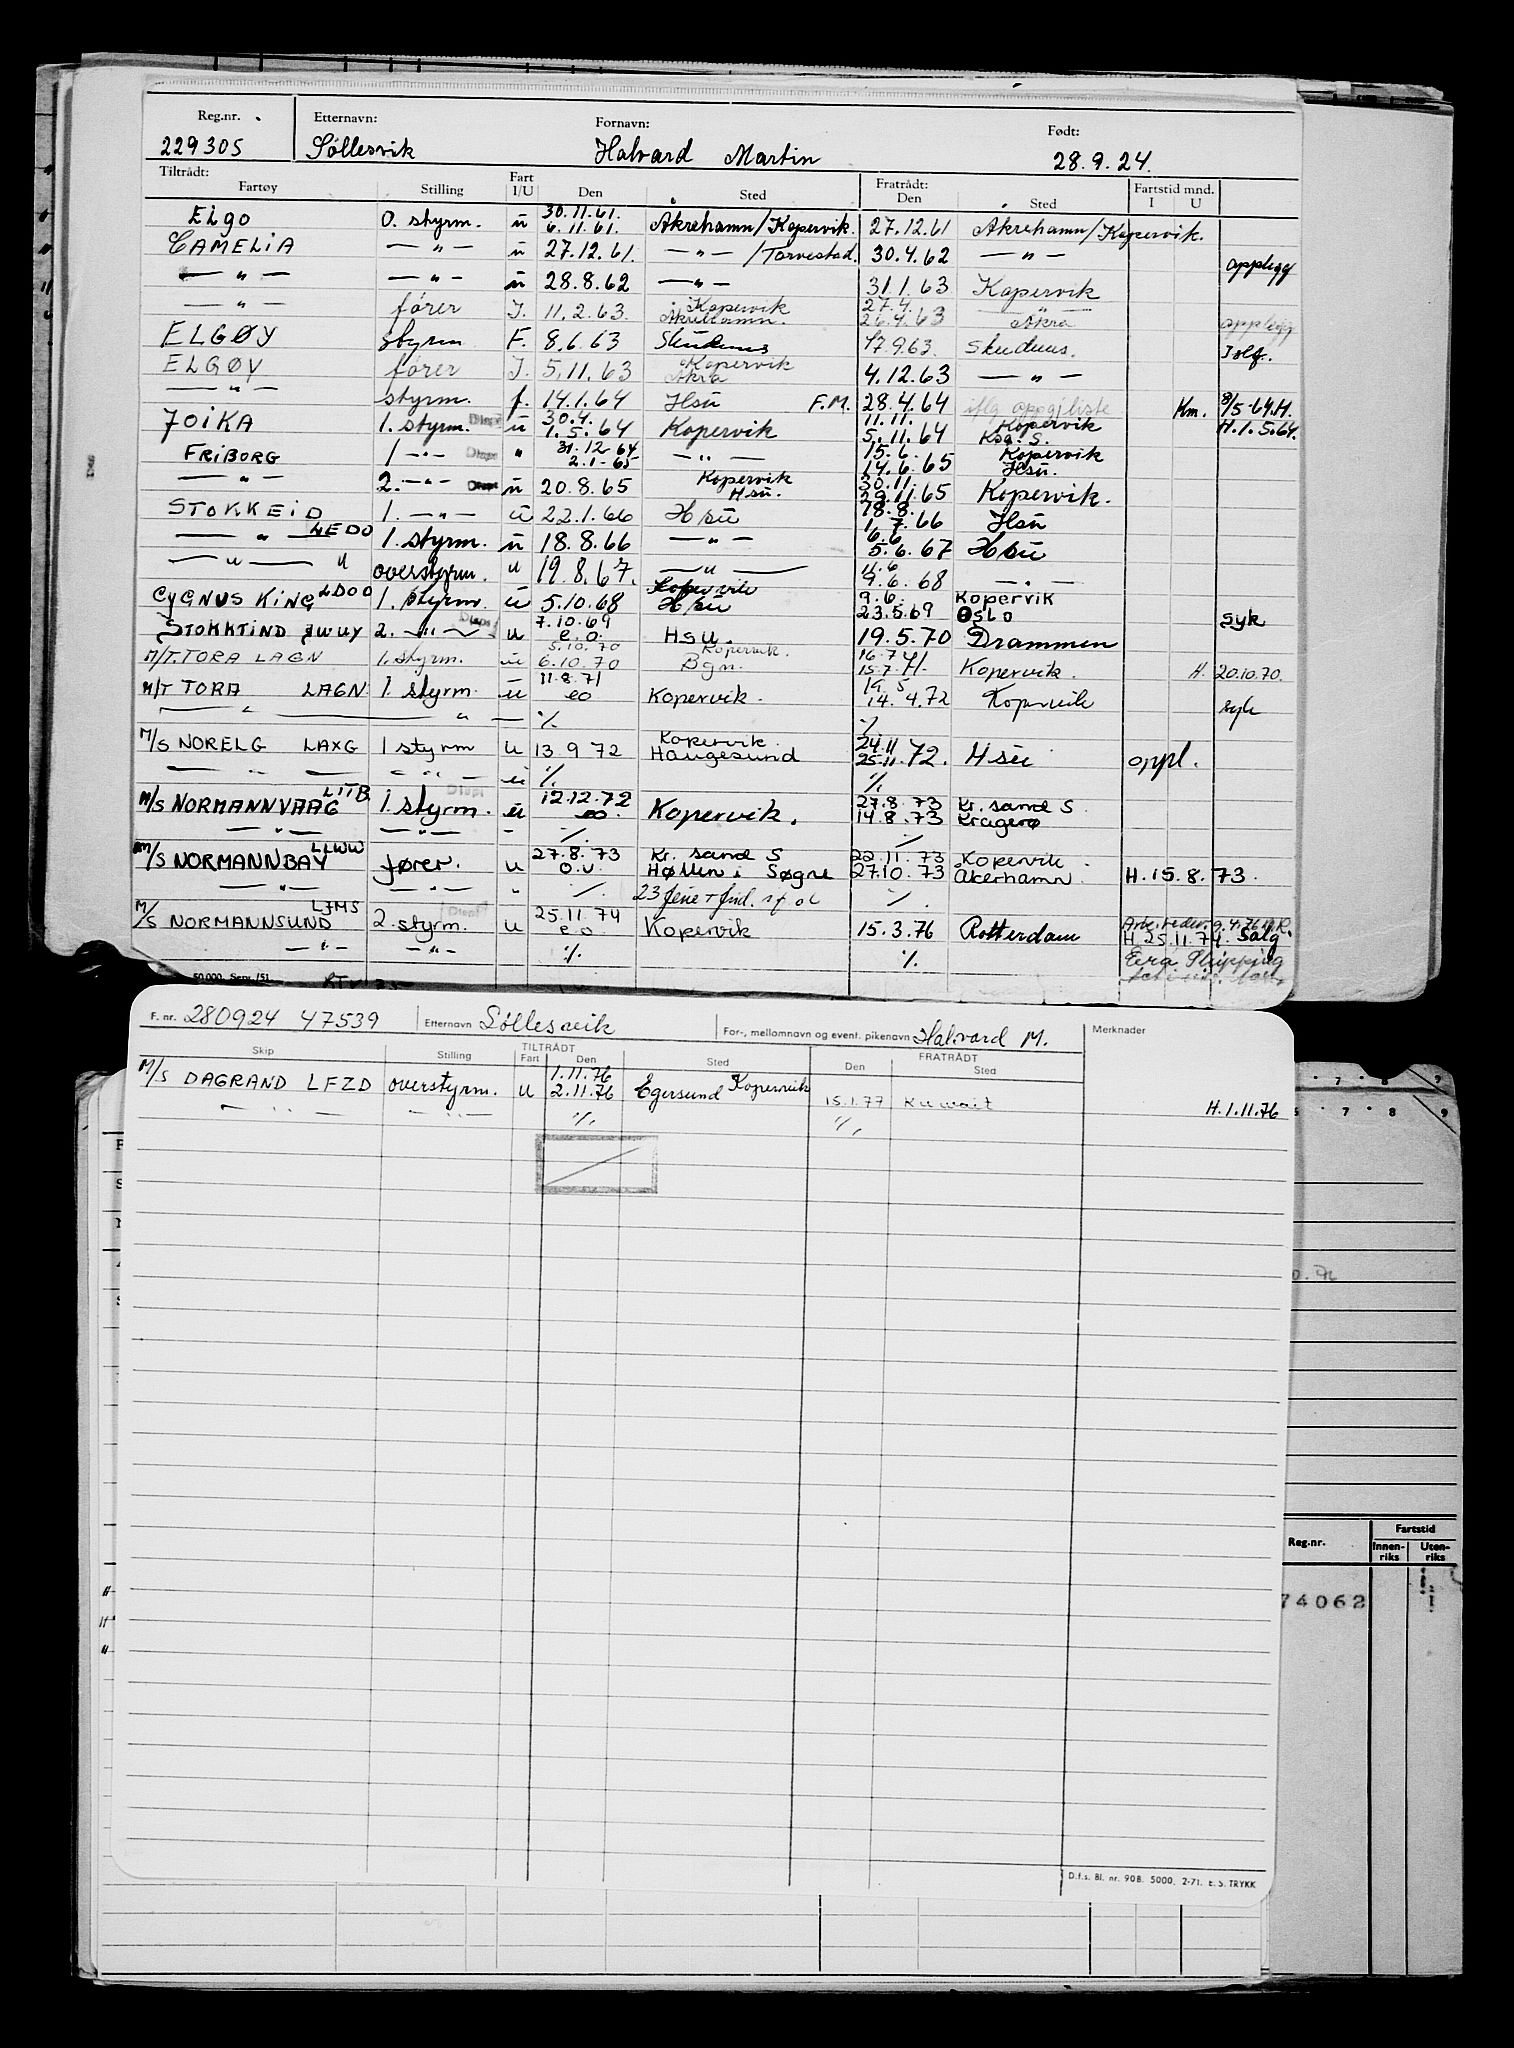 Reg.nr. Etternavn: Fornavn: Født:
229305 Søllesvik Halvard Martin 28.9.24.
Tiltrådt: Fart Fratrådt: Fartstid mnd.
Fartøy Stilling I/U Den Sted Den Sted I U
30.11.61.
Elgo O. styrm. u 6.11.61. Åkrehamn/Kopervik. 27.12.61 Åkrehamn/Kopervik.
CAMELIA —"— u 27.12.61. —"— /Torvestad. 30.4.62 —"— opplegg
—"— —"— u 28.8.62 —"— 31.1.63 Kopervik
Kopervik 27.4. —"—
—"— fører I. 11.2.63. Åkrehamn. 26.4.63 Åkra opplegg
ELGØY styrm F. 8.6.63 Skudenes 17.9.63. Skudenes. Isl.f.
Kopervik
ELGØY fører I. 5.11.63 Åkra 4.12.63 —"—
—"— styrm. f. 14.1.64 Hsu F.M. 28.4.64 iflg oppgj.liste Km. 8/5-64.H.
30.4. 11.11. Kopervik
JOIKA 1. styrm. Disp. u 1.5.64 Kopervik 5.11.64 Ksd. S. H.1.5.64.
31.12-64 15.6. Kopervik
FRIBORG 1 —"— Disp. " 2.1-65 —"— 14.6.65 Hsu.
Kopervik 30.11.
—"— 2. —"— Disp. u 20.8.65 Hsu. 29.11.65 Kopervik.
18.8.
STOKKEID 1. —"— u 22.1.66 Hsu 1.7.66 Hsu
6.6
—"— LEDO 1. styrm. u 18.8.66 —"— 5.6.67 Hsu
11.6
—"— " overstyrm. u 19.8.67. —"— 9.6.68 —"—
Kopervik 9.6. Kopervik
CYGNUS KING LDOO 1. styrm. u 5.10.68 Hsu 23.5.69 Oslo syk
7.10.69
STOKKTIND JWUY 2. —"— Disp. u e.o. Hsu. 19.5.70 Drammen
5.10.70 Kopervik. 16.7
M/T. TORA LAGN 1. styrm. u 6.10.70 Bgn. 15.7.71. Kopervik. H. 20.10.70.
11.8.71
M/T TORA LAGN 1 styrm. u eo Kopervik. 14.4.72 Kopervik syk
—"— — ./. ./.
Kopervik 24.11
M/S NORELG LAXG 1 styrm u 13.9 72 Haugesund 25.11.72. Hsu oppl.
—"— —"— u ./. ./.
LITB Disp. 12.12.72 27.8.73 Kr. sand S
M/S NORMANNVAAG 1. styrm. u eo. Kopervik. 14.8.73 Kragerø
—"— —"— - ./. ./.
LLWW 27.8.73 Kr. sand S 22.11.73 Kopervik
M/S NORMANNBAY fører. u o.v. Høllen i Søgne 27.10.73 Åkerhamn H.15.8.73.
—"— —"— " ./. ./.
LJMS Disp. 25.11.74
M/S NORMANNSUND 2. styrm. u e.o Kopervik 15.3.76 Rotterdam H 25.11.74. Salg
—"— —"— ./. ./. Era Shipping
50.000. Sept./51.
F. nr. 280924 47539 Etternavn Søllesvik For-, mellomnavn og event. pikenavn Halvard M. Merknader
TILTRÅDT FRATRÅDT
Skip Stilling Fart Den Sted Den Sted
1.11.76
M/S DAGRAND LFZD overstyrm. u 2.11.76 Egersund Kopervik 15.1.77 Kuwait H.1.11.76
—"— —"— ./. ./.
D.f.s. Bl. nr. 90B. 5000. 2-71. E.S. TRYKK
7 8 9
7 8 9
Fartstid
Reg.nr. Innen-riks Uten-riks
74062